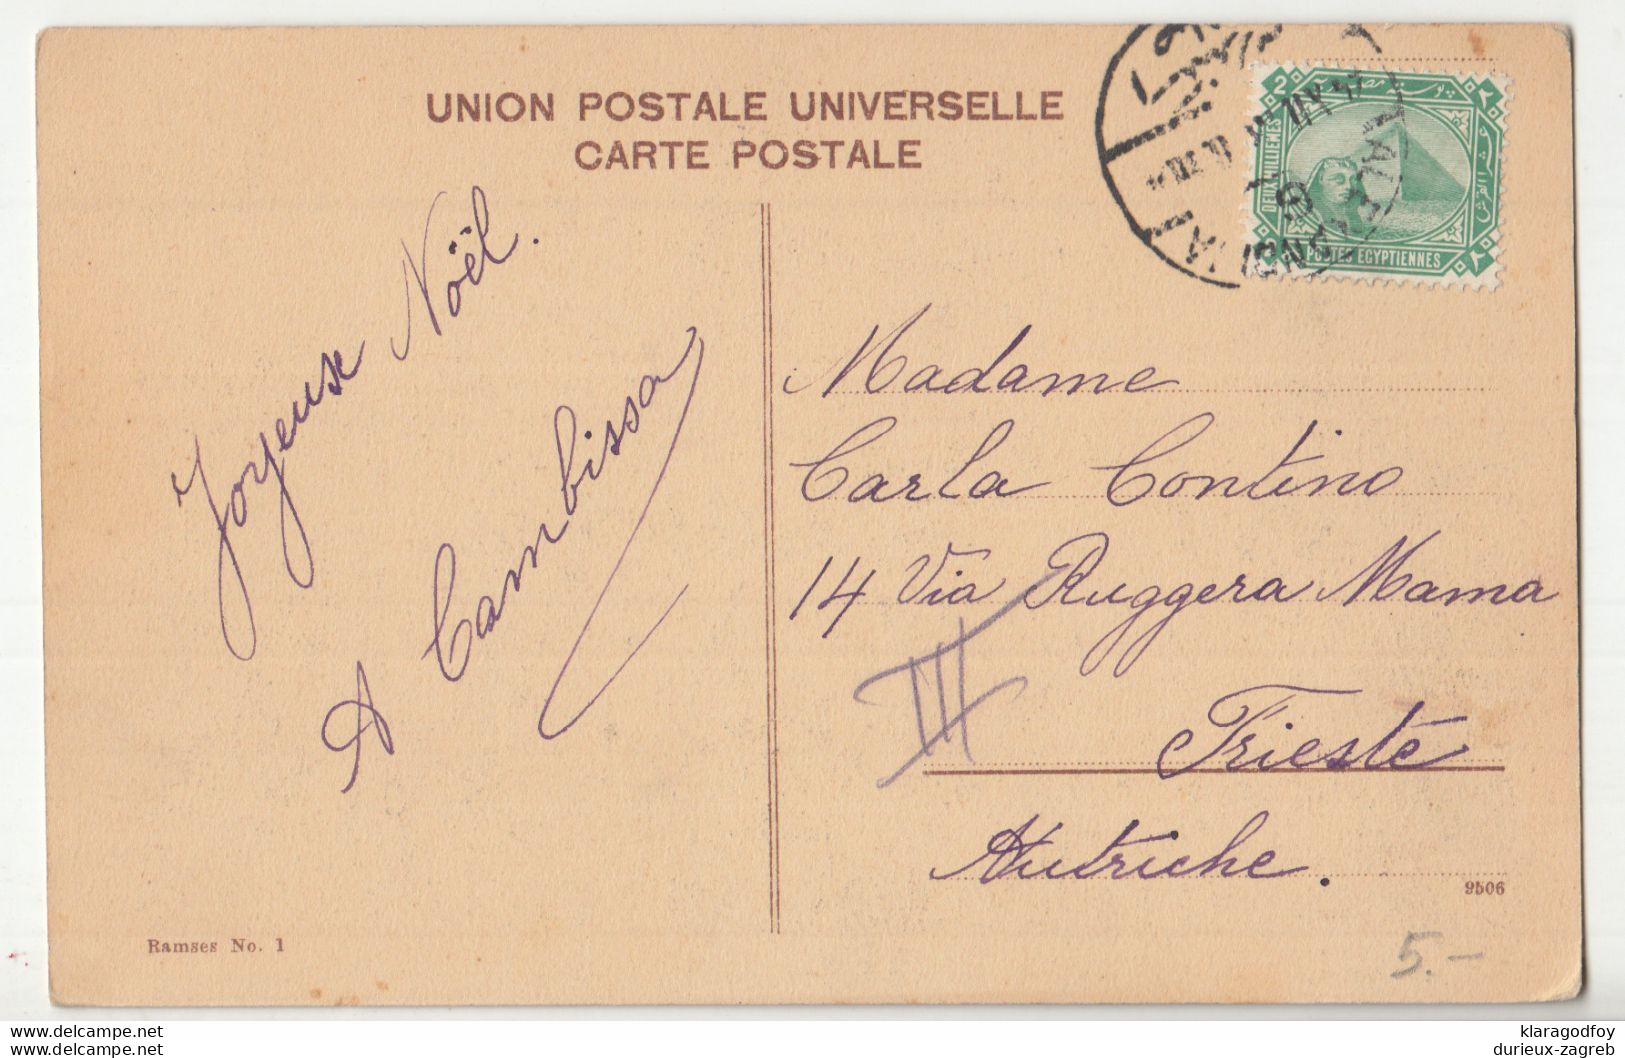 UNION POSTALE UNIVERSELLE
CARTE POSTALE
Joyeuse Noël.
A Cambissa
2
DEUX MILLIEMES
POSTES EGYPTIENNES
Madame
Carla Contino
14 Via Ruggera Mama
III
Trieste
Autriche.
9506
Ramses No. 1
5.-
www.delcampe.net
www.delcampe.net
klaragodfoy
durieux-zagreb